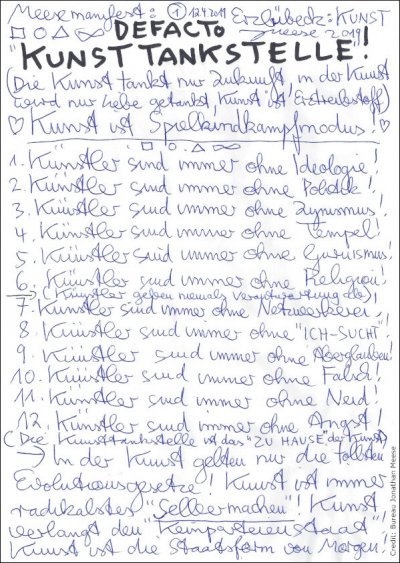 Meesemanifest: ① 12.4.2019 Erzlübeck: KUNST
DEFACTO Meese 2019
"KUNSTTANKSTELLE"!
(Die Kunst tankt nur Zukunft, in der Kunst
wird nur Liebe getankt, Kunst ist Erztreibstoff)
Kunst ist Spielkindkampfmodus!
1. Künstler sind immer ohne Ideologie!
2. Künstler sind immer ohne Politik!
3. Künstler sind immer ohne Zynismus!
4. Künstler sind immer ohne Tempel!
5. Künstler sind immer ohne Guruismus!
6. Künstler sind immer ohne Religion!
→ (Künstler geben niemals Verantwortung ab)
7. Künstler sind immer ohne Netzwerkerei!
8. Künstler sind immer ohne "ICH-SUCHT"!
9. Künstler sind immer ohne Aberglauben!
10. Künstler sind immer ohne Falsch!
11. Künstler sind immer ohne Neid!
12. Künstler sind immer ohne Angst!
(Die Kunsttankstelle ist das "ZU HAUSE" der Kunst)
→ In der Kunst gelten nur die tollsten
Evolutionsgesetze! Kunst ist immer
radikalstes "Selbermachen"! Kunst
verlangt den "Keinparteienstaat"!
Kunst ist die Staatsform von Morgen!
Credit: Bureau Jonathan Meese